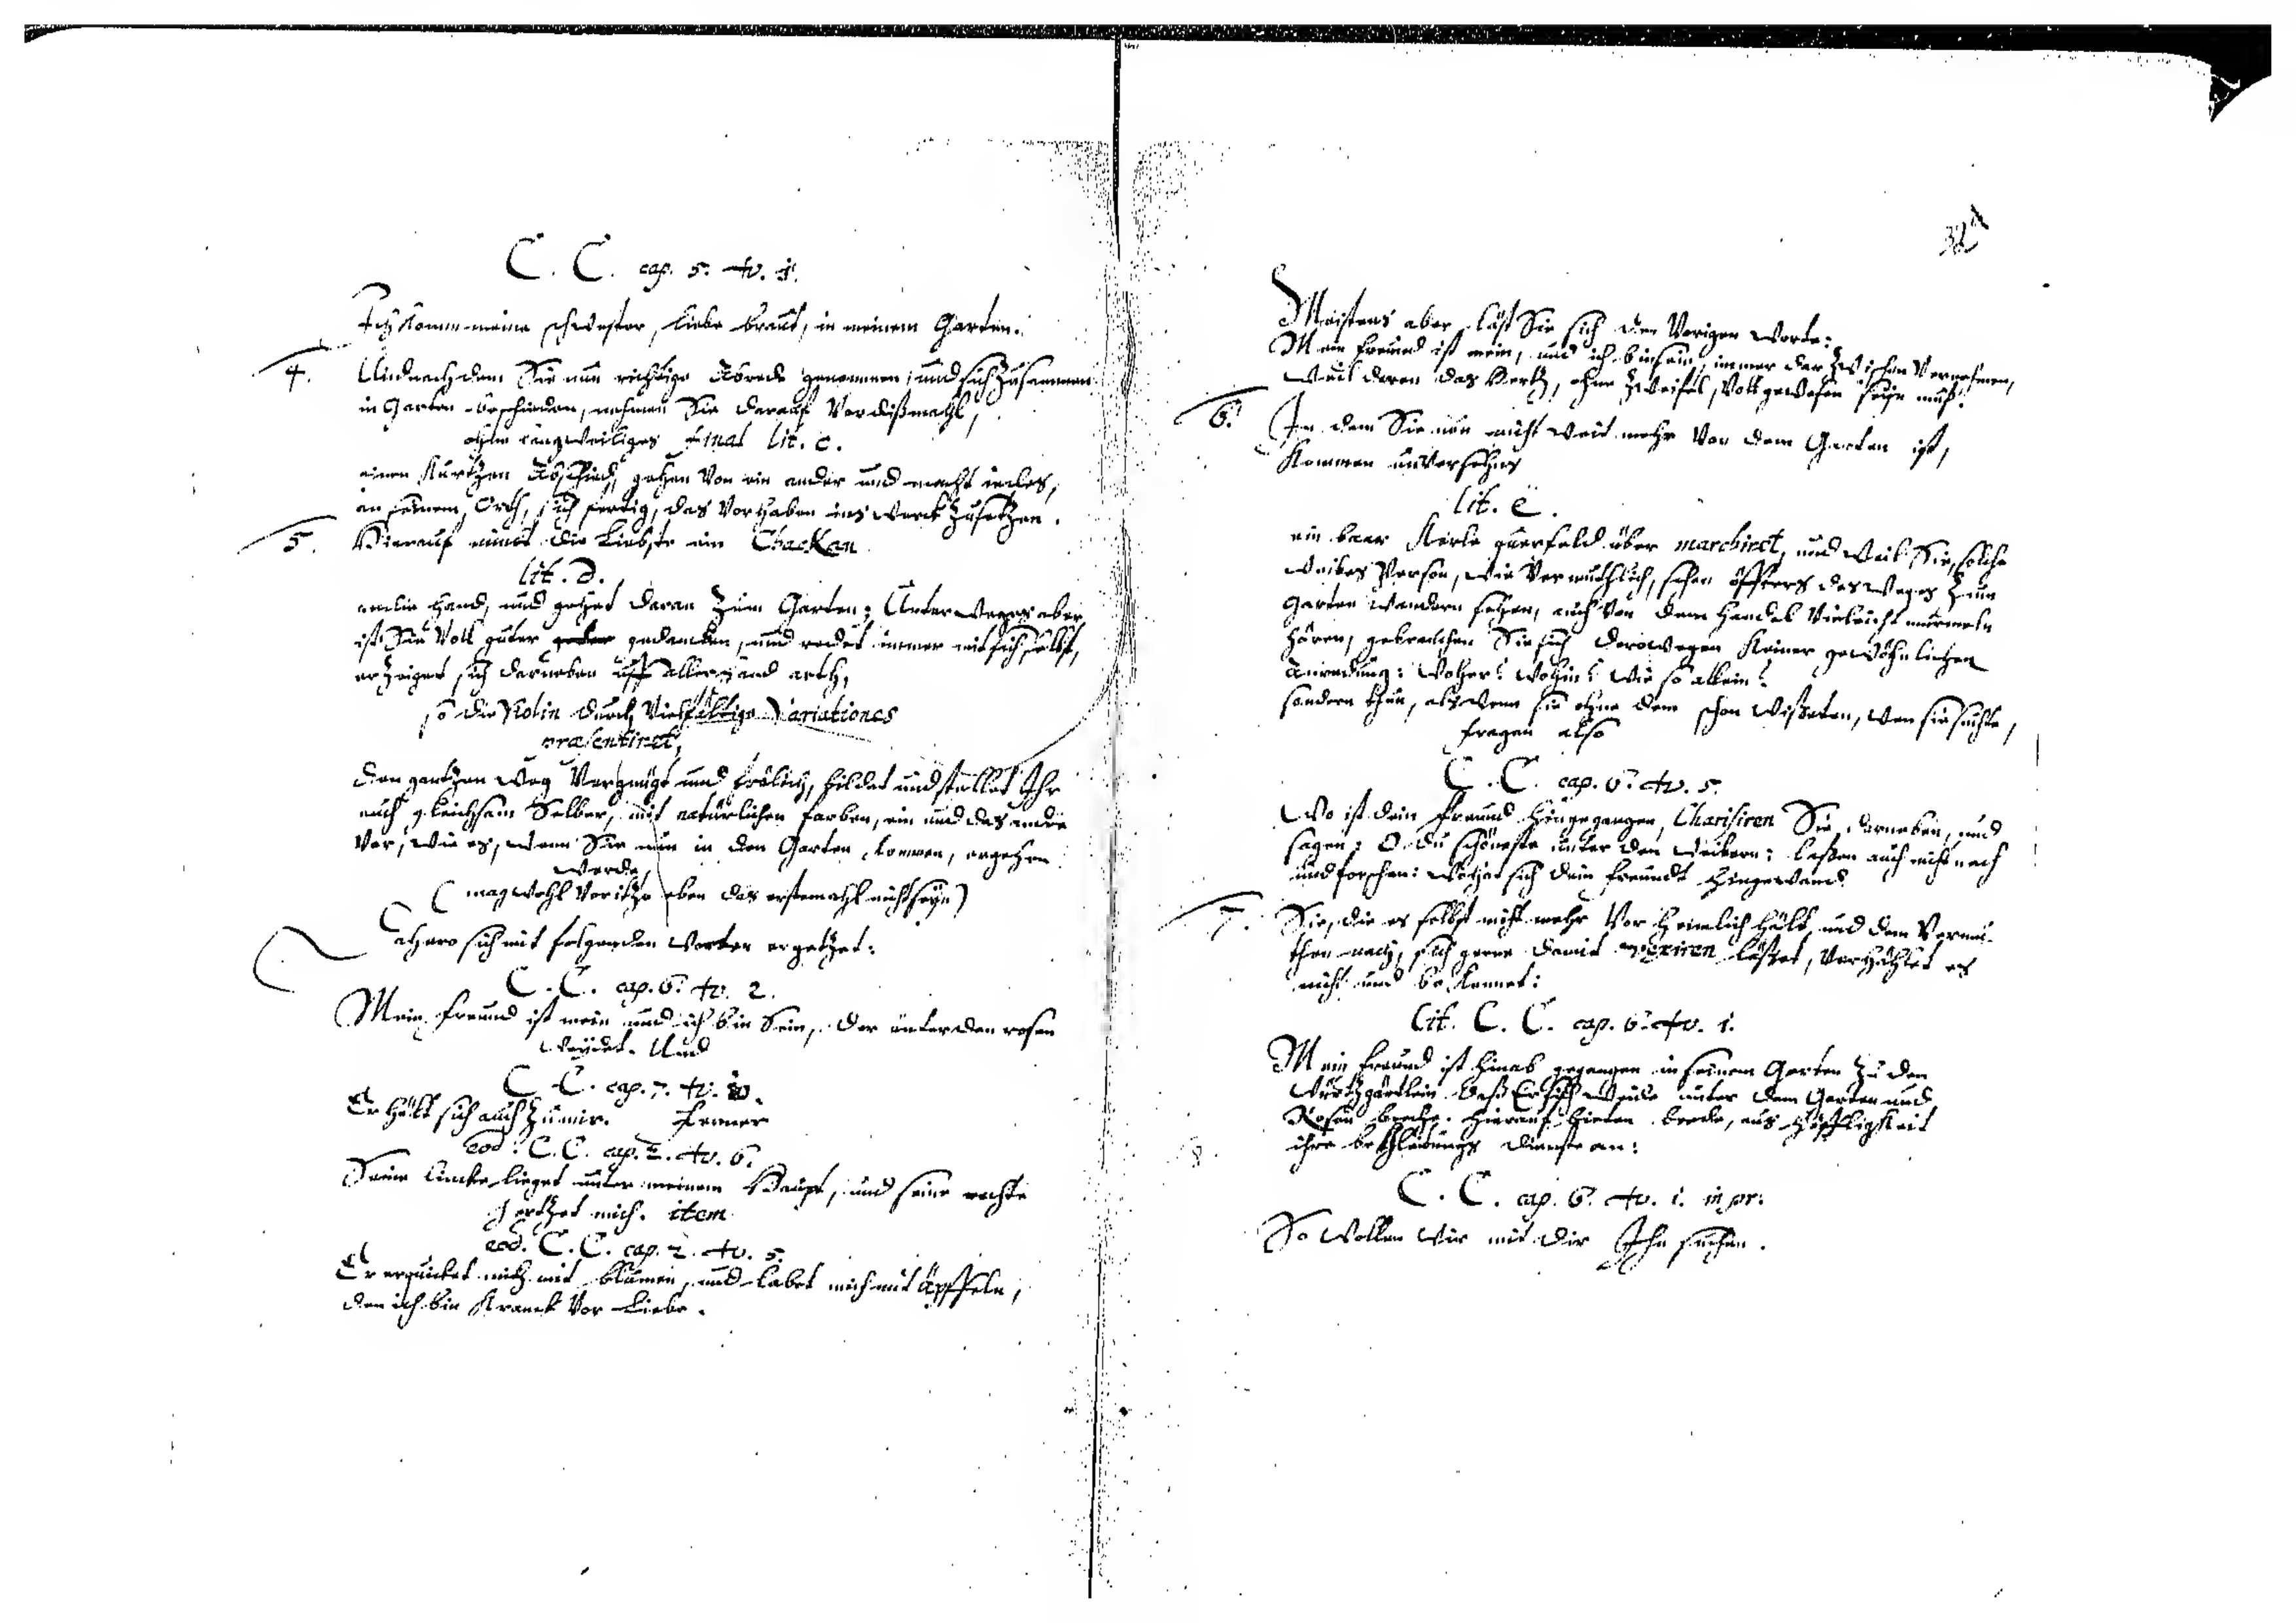 C. C. cap. 5. v. 1.
Ich komm meine schwester, liebe braut, in meinem Garten.
4. Und nach dem Sie nun richtige Abrede genommen, und sich zusammen
in Garten beschieden, nehmen Sie darauf Vor dißmahl,
ohn langweiliges final lit. c.
einen kurtzen Abschied, gehen von ein ander und macht iedes,
an seinem Orth, sich fertig, das Vorhaben ins werck zu setzen.
5. Hierauf nimbt die Liebste ein Chackan
lit. d.
in die hand, und gehet daran zum Garten; Unter weges aber
ist Sie Voll guter guter gedancken, und redet immer mit sich selbst,
erzeiget sich darneben uff allerhand arth,
so die Violin durch Vielfältige Variationes
præsentiret,
den gantzen weg Vergnügt und frölich, bildet und stellet Ihr
auch gleichsam Selber, mit natürlichen farben, ein und das andre
Vor, wie es, wenn Sie nun in den Garten kommen, ergehen
werde,
(mag wohl Vor itzo eben das erstemahl nicht seyn)
dahero sich mit folgenden Worten ergetzet:
C. C. cap. 6. v. 2.
Mein freund ist mein und ich bin Sein, der unter den rosen
weydet. Und
C. C. cap. 7. v. 10.
Er hält sich auch zu mir. ferner
eod. C. C. cap. 2. v. 6.
Seine lincke lieget unter meinem Haupt, und seine rechte
hertzet mich. item
eod. C. C. cap. 2. v. 5.
Er erquicket mich mit blumen, und labet mich mit äpffeln,
den ich bin kranck Vor Liebe.
Meistens aber läst Sie sich den Vorigen worte:
Mein freund ist mein, und ich bin sein, immer darzwischen Vernehmen,
weil deren das Hertz, ohne zweifel, Voll gewesen seyn muß.
6. In dem Sie nun nicht weit mehr von dem Garten ist,
kommen unversehns
lit. e.
ein baar Kerls querfeld über marchiret, und weil Sie, solche
weibes Person, wie Vermuthlich, schon öffters des weges zum
Garten wandern sehen, auch von dem handel Vieleicht murmeln
hören, gebrauchen Sie sich derowegen keiner gewöhnlichen
Anredung: woher? wohin? wie so allein?
sondern thun, als wenn sie ohne dem schon wisseten, wen sie suchte,
fragen also
C. C. cap. 6. v. 5.
Wo ist dein freund hingegangen, Charisiren Sie darneben, und
sagen: O du schönste unter den weibern: lassen auch nicht nach
und forschen: wo hat sich dein freundt hingewand.
7. Sie, die es selbst nicht mehr Vor heimlich hält, und dem Vermu-
then nach, sich gerne damit vexiren lässet, Verhählet es
nicht und bekennet:
lit. C. C. cap. 6. v. 1.
Mein freund ist hinab gegangen in seinem Garten zu den
würtzgärtlein, daß Er sich weide unter dem Garten und
Rosen breche. hierauf bieten beede, aus höffligkeit
ihre begleitungs dienste an:
8.
C. C. cap. 6. v. 1. in pr:
So wollen wir mit dir Ihn suchen.